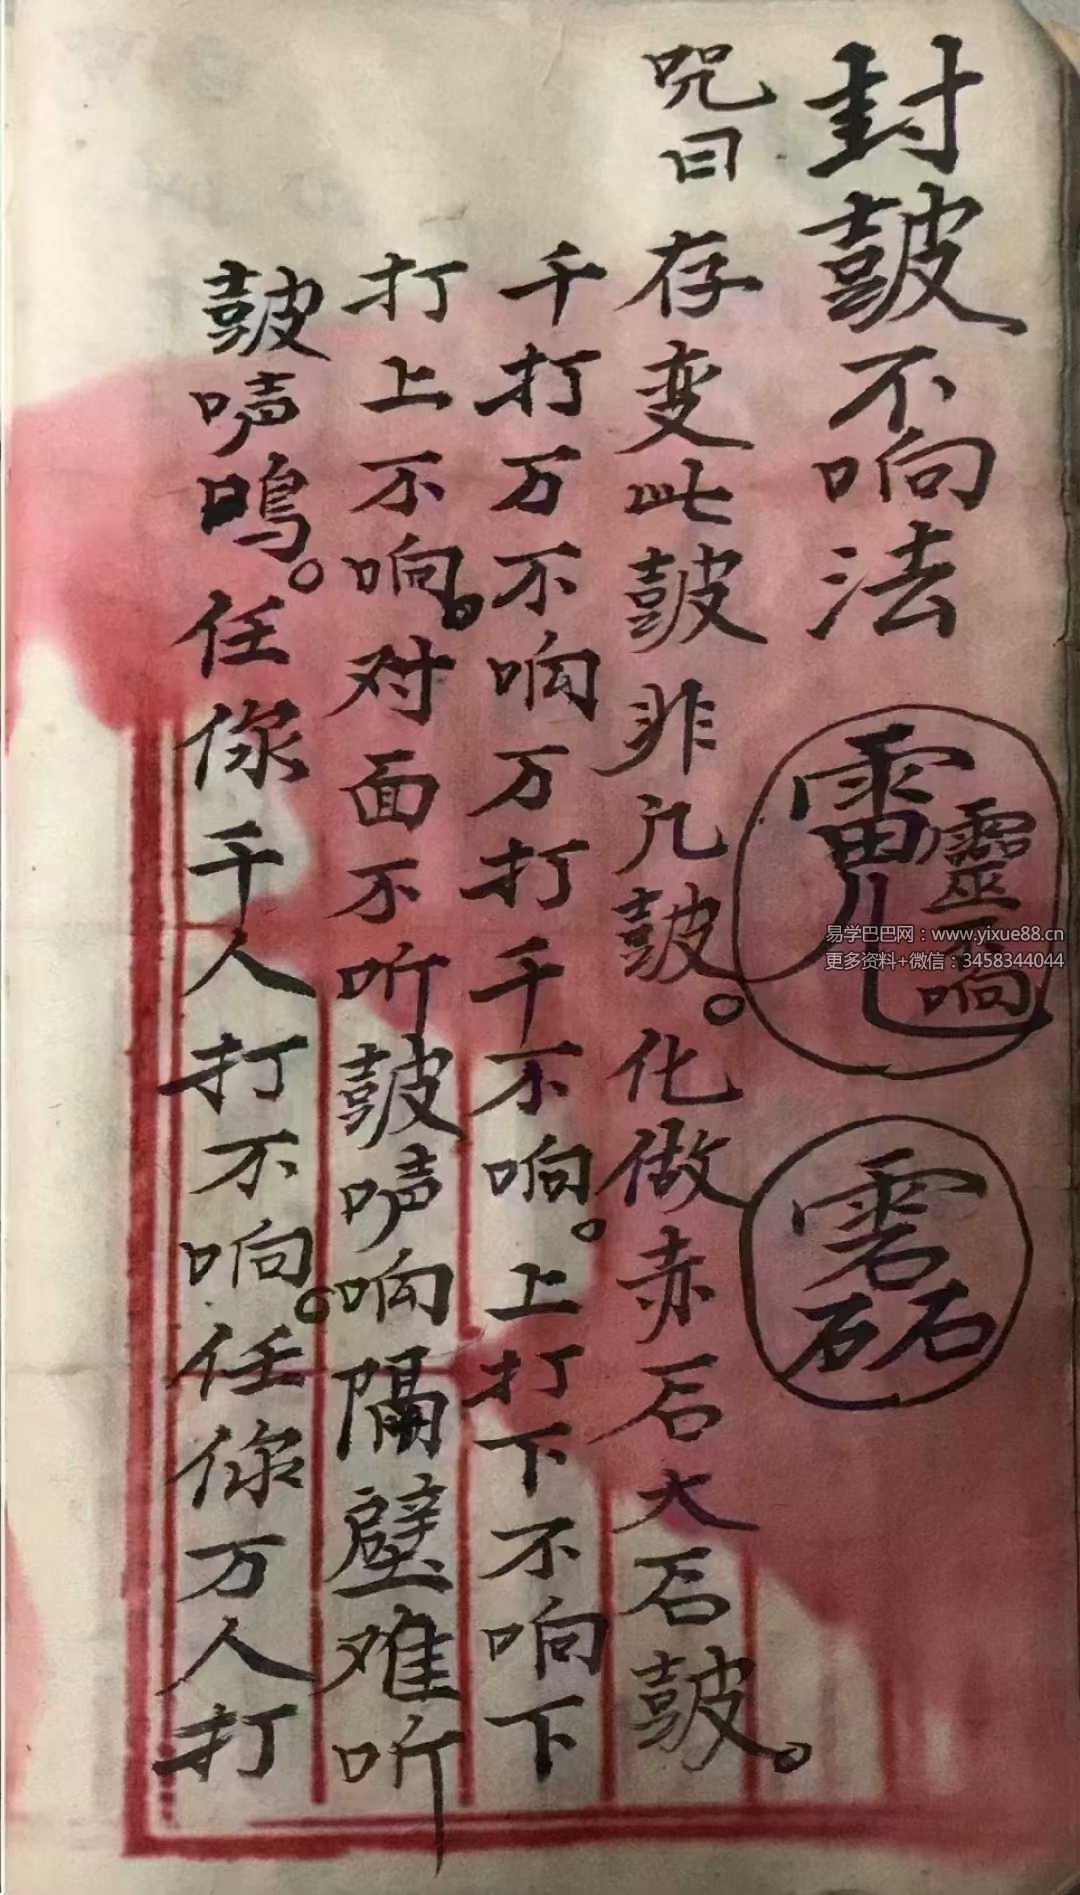 封皷不响法
靈不响
咒曰存变此皷非凡皷。化做赤石大石皷。
千打万不响万打千不响。上打下不响下
打上不响。对面不听皷声响隔壁难听
皷声鳴。任你千人打不响。任你万人打
易学巴巴网：www.yixue88.cn
更多资料+微信：3458344044